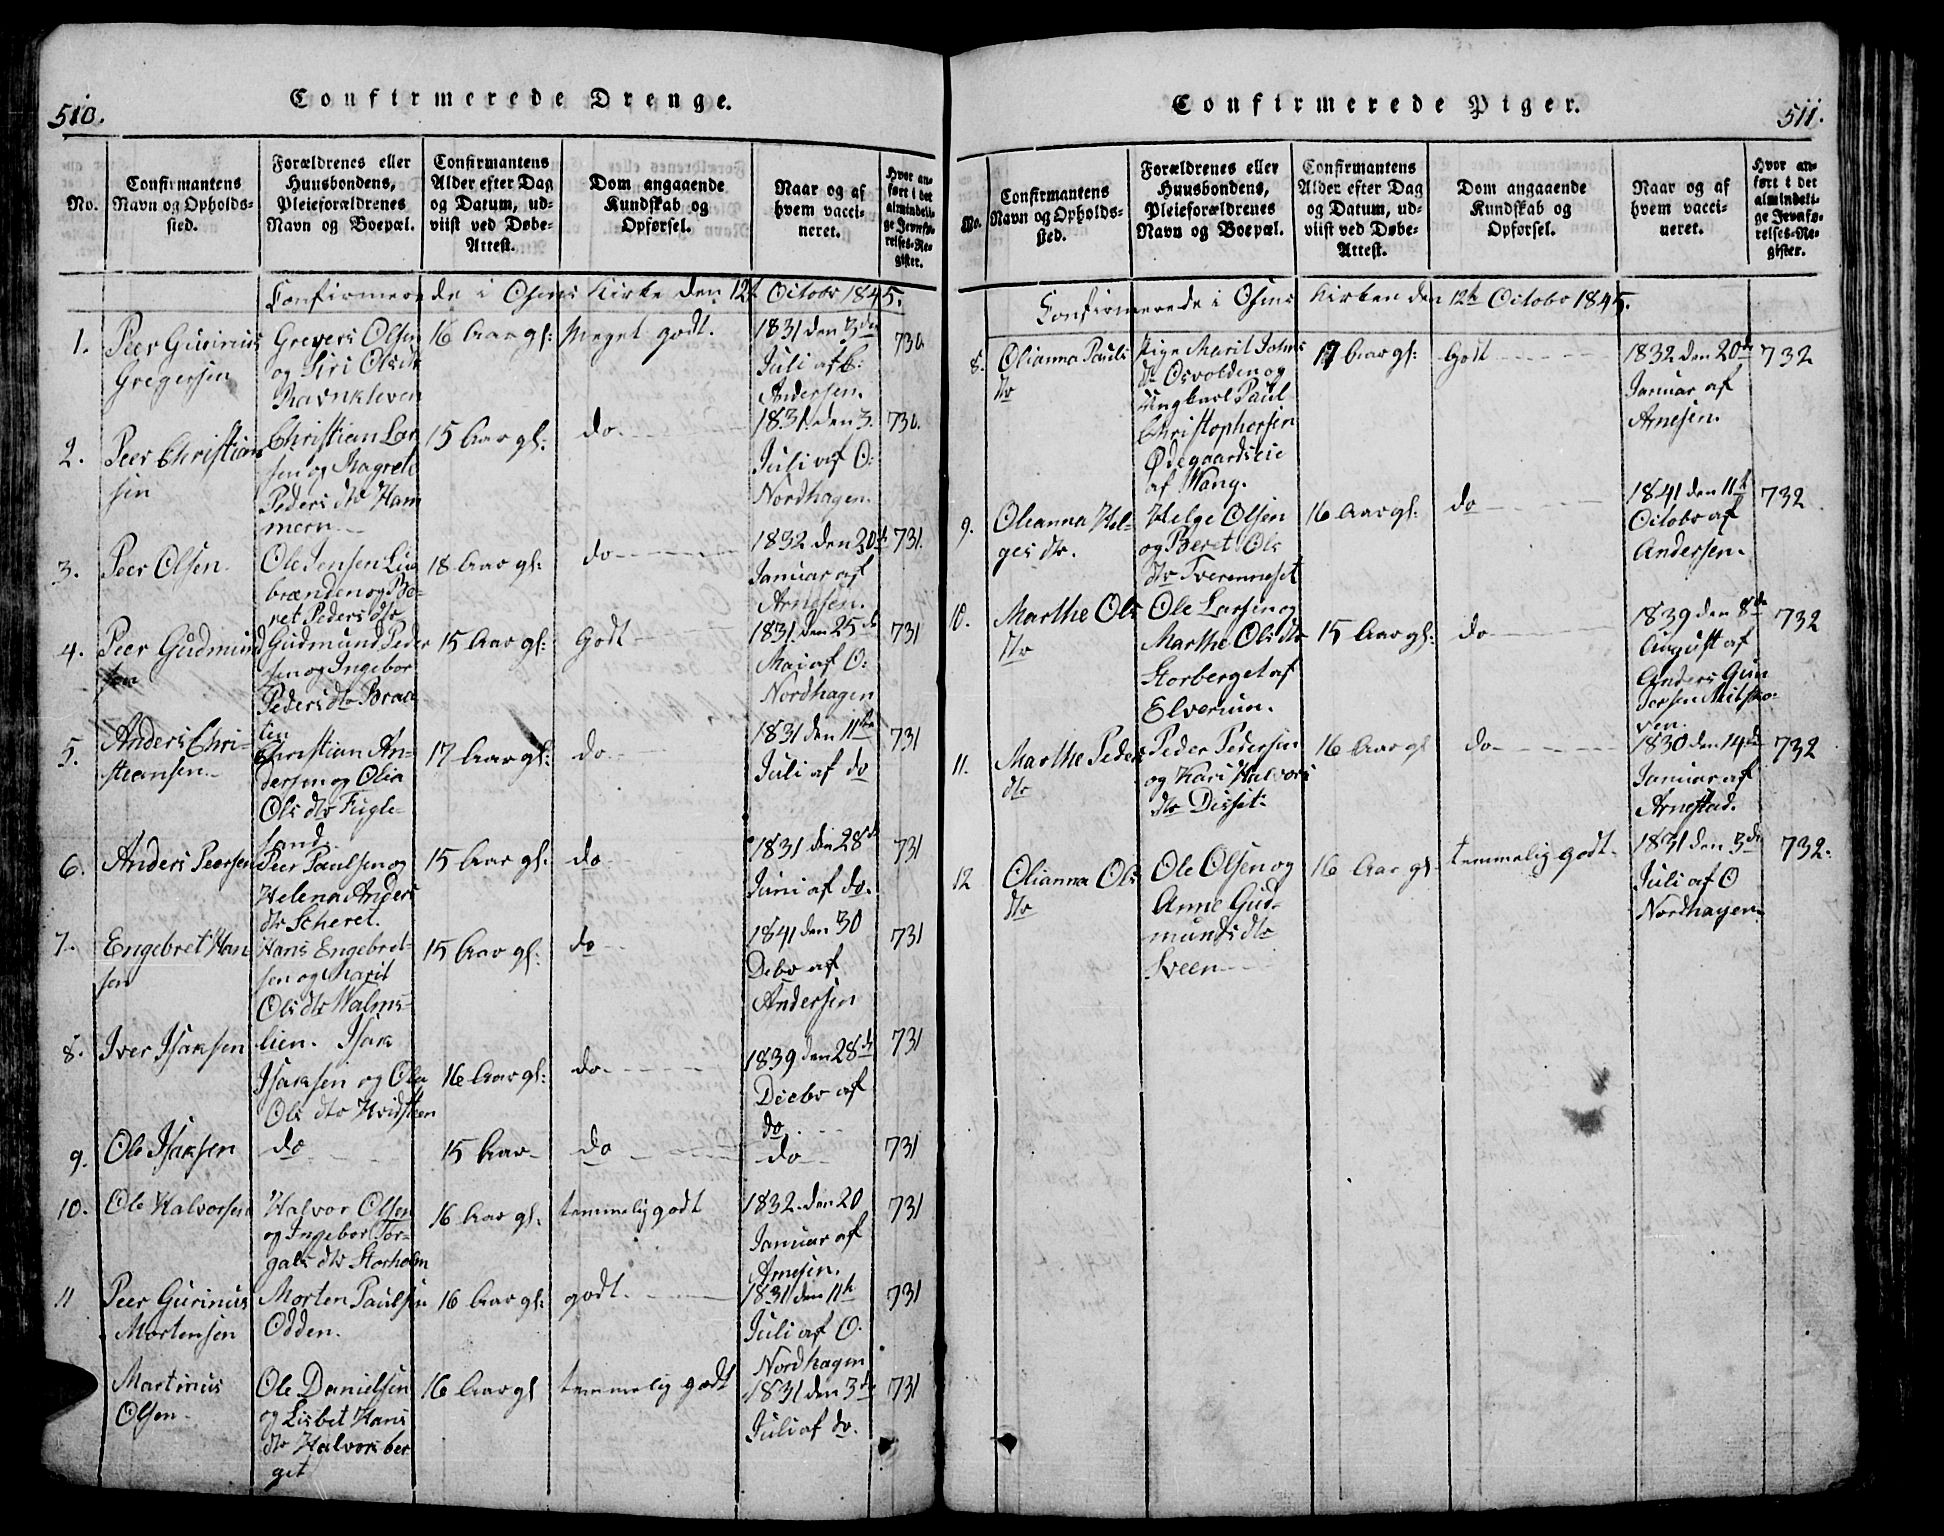 510.
Confirmerede Drenge.
No.
Confirmantens Navn og Opholds-sted.
Forældrenes eller Huusbondens, Pleieforældrenes Navn og Boepæl.
Confirmantens Alder efter Dag og Datum, ud-viist ved Døbe-Attest.
Dom angaaende Kundskab og Opførsel.
Naar og af hvem vacci-neret.
Hvor an-ført i det almindeli-ge Jevnfø-relses-Re-gister.
Confirmerede i Osens Kirke den 12t Octobr 1845.
1. Peer Gurinius Gregersen
Grevers Olsen og Siri Olsdtr Ravnkleven
16 Aar gl: Meget godt.
1831 den 3die Juli af C: Andersen.
730.
2. Peer Christian sen
Christian Lar sen og Ragrete Peders dtr Ham mern
15 Aar gl: do.
1831. den 3. Juli af O: Nordhagen.
730.
3. Peer Olsen
Ole Jensen brænden og Be-ret Peders dtr
18 Aar gl: do
1832 den 20de Januar af Arnesen.
731.
4. Peer Gudmund sen
Gudmund Peder sen og Ingebor Peders dtr Braa lien
15 Aar gl: Godt
1831 den 25de Mai af O: Nordhagen
731
5. Anders Chri-stiansen
Christian An-dersen og Olia Ols dtr Fugle-sand.
17 Aar gl: do
1831 den 11te Juli af do
731
6. Anders Peersen
Peer Paulsen og Helena Anders dtr Scheret.
15 Aar gl: do
1831 den 28de Juni af do.
731
7. Engebret Han sen
Hans Engebret-sen og Marit Ols dtr Malms-lien.
15 Aar gl: do
1841 den 30 Debr af Andersen
731
8. Iver Isaksen
Isak Isaksen og Ola Ols dtr Hvidsteen
16 Aar gl: do
1839 den 28de Decbr af do
731
9. Ole Isaksen
do
15 Aar do
do
731
10. Ole Halvorsen
Halvor Olsen og Ingebor Tor-gals dtr Storholm
16 Aar gl. temmelig godt
1832. den 20 Januar af Arnesen.
731
11 Peer Gurinius Mortensen
Morten Paulsen Odden.
16 Aar gl: godt.
1831 den 11te Juli af O. Nordhagen
731
Martinus Olsen
Ole Danielsen og Lisbet Hans dtr Halvorsber get
16 Aar gl temmelig godt
1831 den 3die Juli af do.
731
Confirmerede Piger.
511.
No.
Confirmantens Navn og Opholds-sted.
Forældrenes eller Huusbondens, Pleieforældrenes Navn og Boepæl.
Confirmantens Alder efter Dag og Datum, ud-viist ved Døbe-Attest.
Dom angaaende Kundskab og Opførsel.
Naar og af hvem vacci-neret.
Hvor an-ført i det almindeli-ge Jevnfø-relses-Re-gister.
Confirmerede i Osens Kirken den 12te Octobr 1845.
8. Olianna Pauls dtr
Pige Marit Johns dtr Osvolden og Ungkarl Paul Christophersen Ødegaardseie af Wang.
17 Aar gl: Godt
1832 den 20de Januar af Arnesen.
732
9. Olianna Hel-ges dtr.
Helge Olsen og Beret Ols dtr Tverenneset
16 Aar gl: do
1841 den 11te Octobr af Andersen.
732
10. Marthe Ols dtr
Ole Larsen og Marthe Ols dtr Storberget af Elverum.
15 Aar gl: do
1839 den 8de August af Anders Gun
732
11. Marthe Peders dtr
Peder Pedersen og Kari Halvors dtr Disset
16 Aar gl do
1830 den 14de Januar af Arnestad.
732
12 Olianna Ols dtr
Ole Olsen og Anne Gud-munds dtr Sveen
16 Aar gl temmelig godt.
1831 den 3die Juli af O Nordhagen
732.